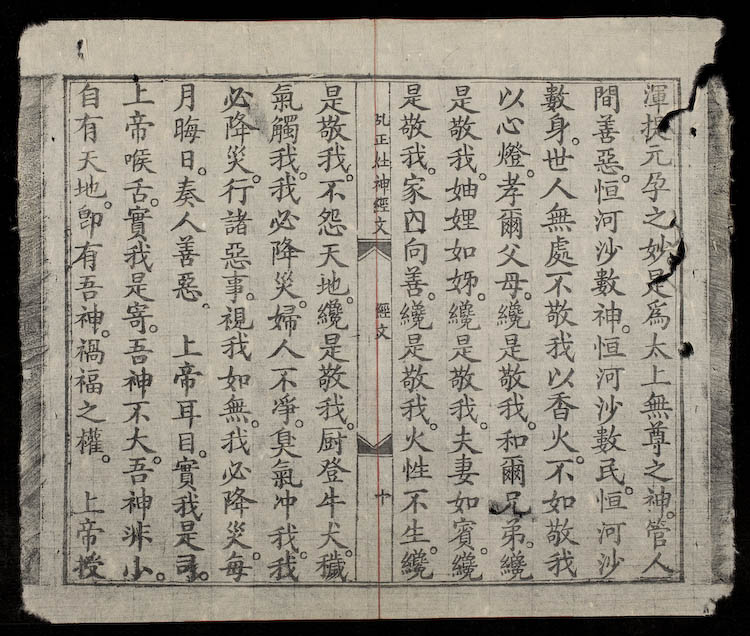 渾按元孕之妙是爲太上無尊之神。管人
間善惡。恒河沙數神。恒河沙數民。恒河沙
數身。世人無處不敬我以香火。不如敬我
以心燈。孝爾父母。纔是敬我。和爾兄弟。纔
是敬我。妯娌如姊。纔是敬我。夫妻如賓。纔
是敬我。家內向善。纔是敬我。火性不生。纔
乩正灶神經文
經文
十
是敬我。不怨天地。纔是敬我。厨登牛犬。穢
氣觸我。我必降災。婦人不淨。臭氣冲我。我
必降災。行諸惡事。視我如無。我必降災。每
月晦日。奏人善惡。　上帝耳目。實我是司。
上帝喉舌。實我是寄。吾神不大。吾神non小。
自有天地。卽有吾神。禍福之權。　上帝授